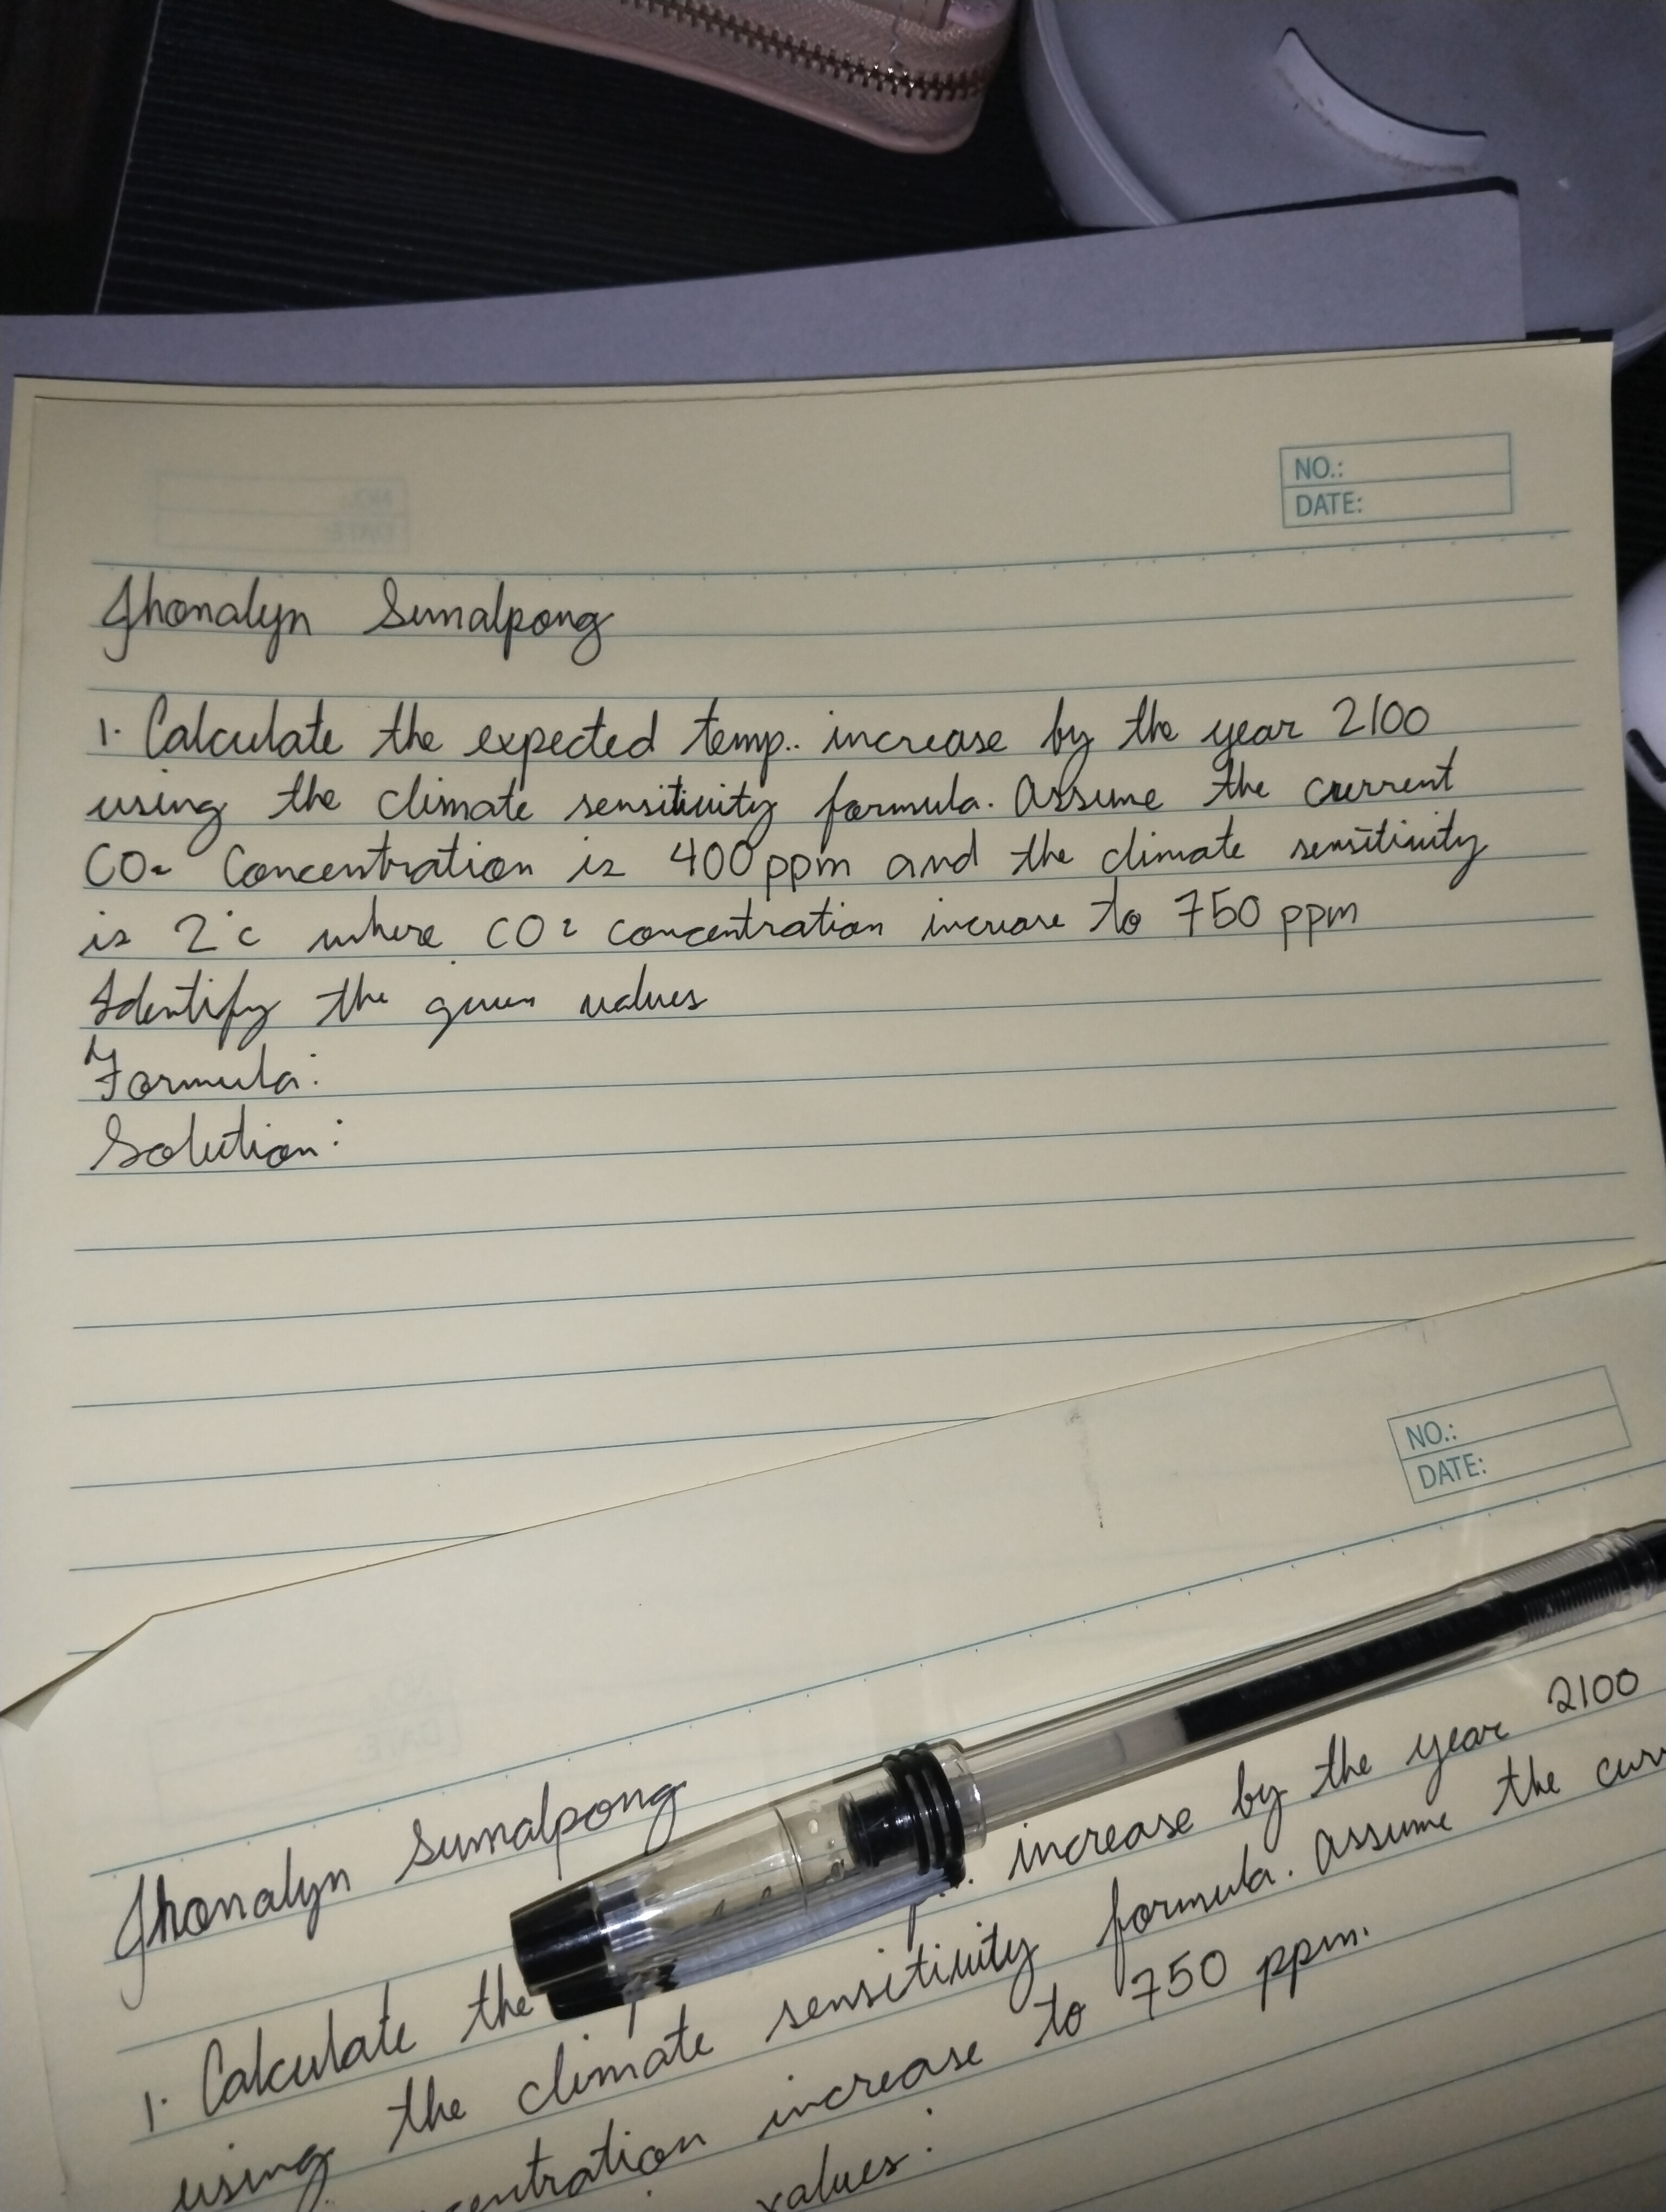 NO.:
DATE:
Jhonalyn Sumalpong
1. Calculate the expected temp.. increase by the year 2100
using the climate sensitivity formula. Assume the current
CO2 Concentration is 400 ppm and the climate sensitivity
is 2°c where CO2 concentration increase to 750 ppm
Identify the given values
Formula:
Solution:
NO.:
DATE:
Jhonalyn Sumalpong
1. Calculate the increase by the year 2100
using the climate sensitivity formula. Assume the curr
entration increase to 750 ppm.
values: